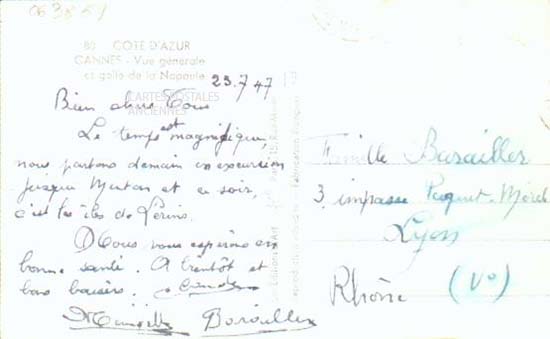 80 COTE D'AZUR
CANNES - Vue générale
et golfe de la Napoule
23.7.47
CARTES POSTALES
ANCIENNES
Bien chers Tous
Le temps est magnifique,
nous partons demain en excursion
jusqu'a Menton et ce soir,
c'est les îles de Lérins.
Nous vous espérons en
bonne santé. A bientôt et
bons baisers.
Barailler
Famille Barailler
3, impasse
Lyon
Rhône (Vº)